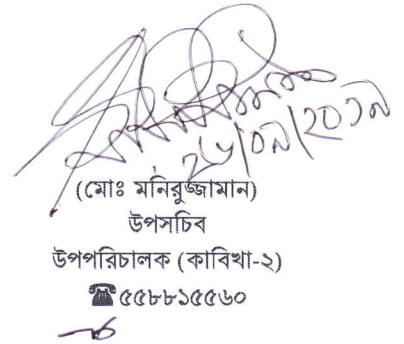 ২৬/০৯/২০১৯
(মোঃ মনিরুজ্জামান)
উপসচিব
উপপরিচালক (কাবিখা-২)
☎৫৫৮৮১৫৫৬০